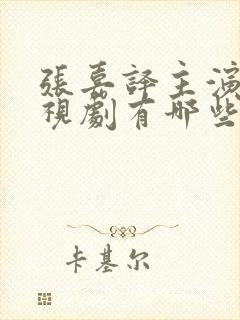 張嘉譯主演
視劇有哪些
卡基尔